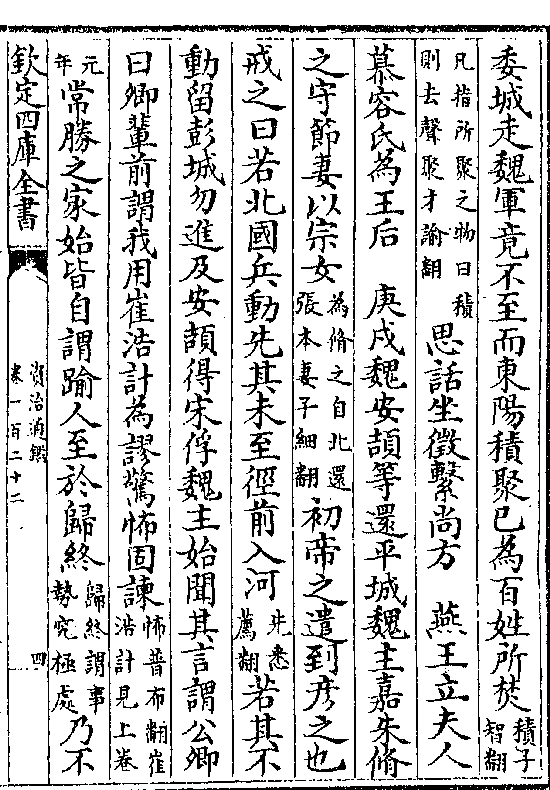 委城走魏軍竟不至而東陽積聚已為百姓所焚積子智翻
凡指所聚之物曰積則去聲聚才諭翻思話坐徵繫尚方　燕王立夫人
慕容氏為王后　庚戌魏安頡等還平城魏主嘉朱脩
之守節妻以宗女為脩之自北還張本妻子細翻初帝之遣到彦之也
戒之曰若北國兵動先其未至徑前入河先悉薦翻若其不
動留彭城勿進及安頡得宋俘魏主始聞其言謂公卿
曰卿輩前謂我用崔浩計為謬驚怖固諫怖普布翻崔浩計見上卷
元年常勝之家始皆自謂踰人至於歸終歸終謂事勢究極處乃不
欽定四庫全書
資治通鑑
卷一百二十二
四